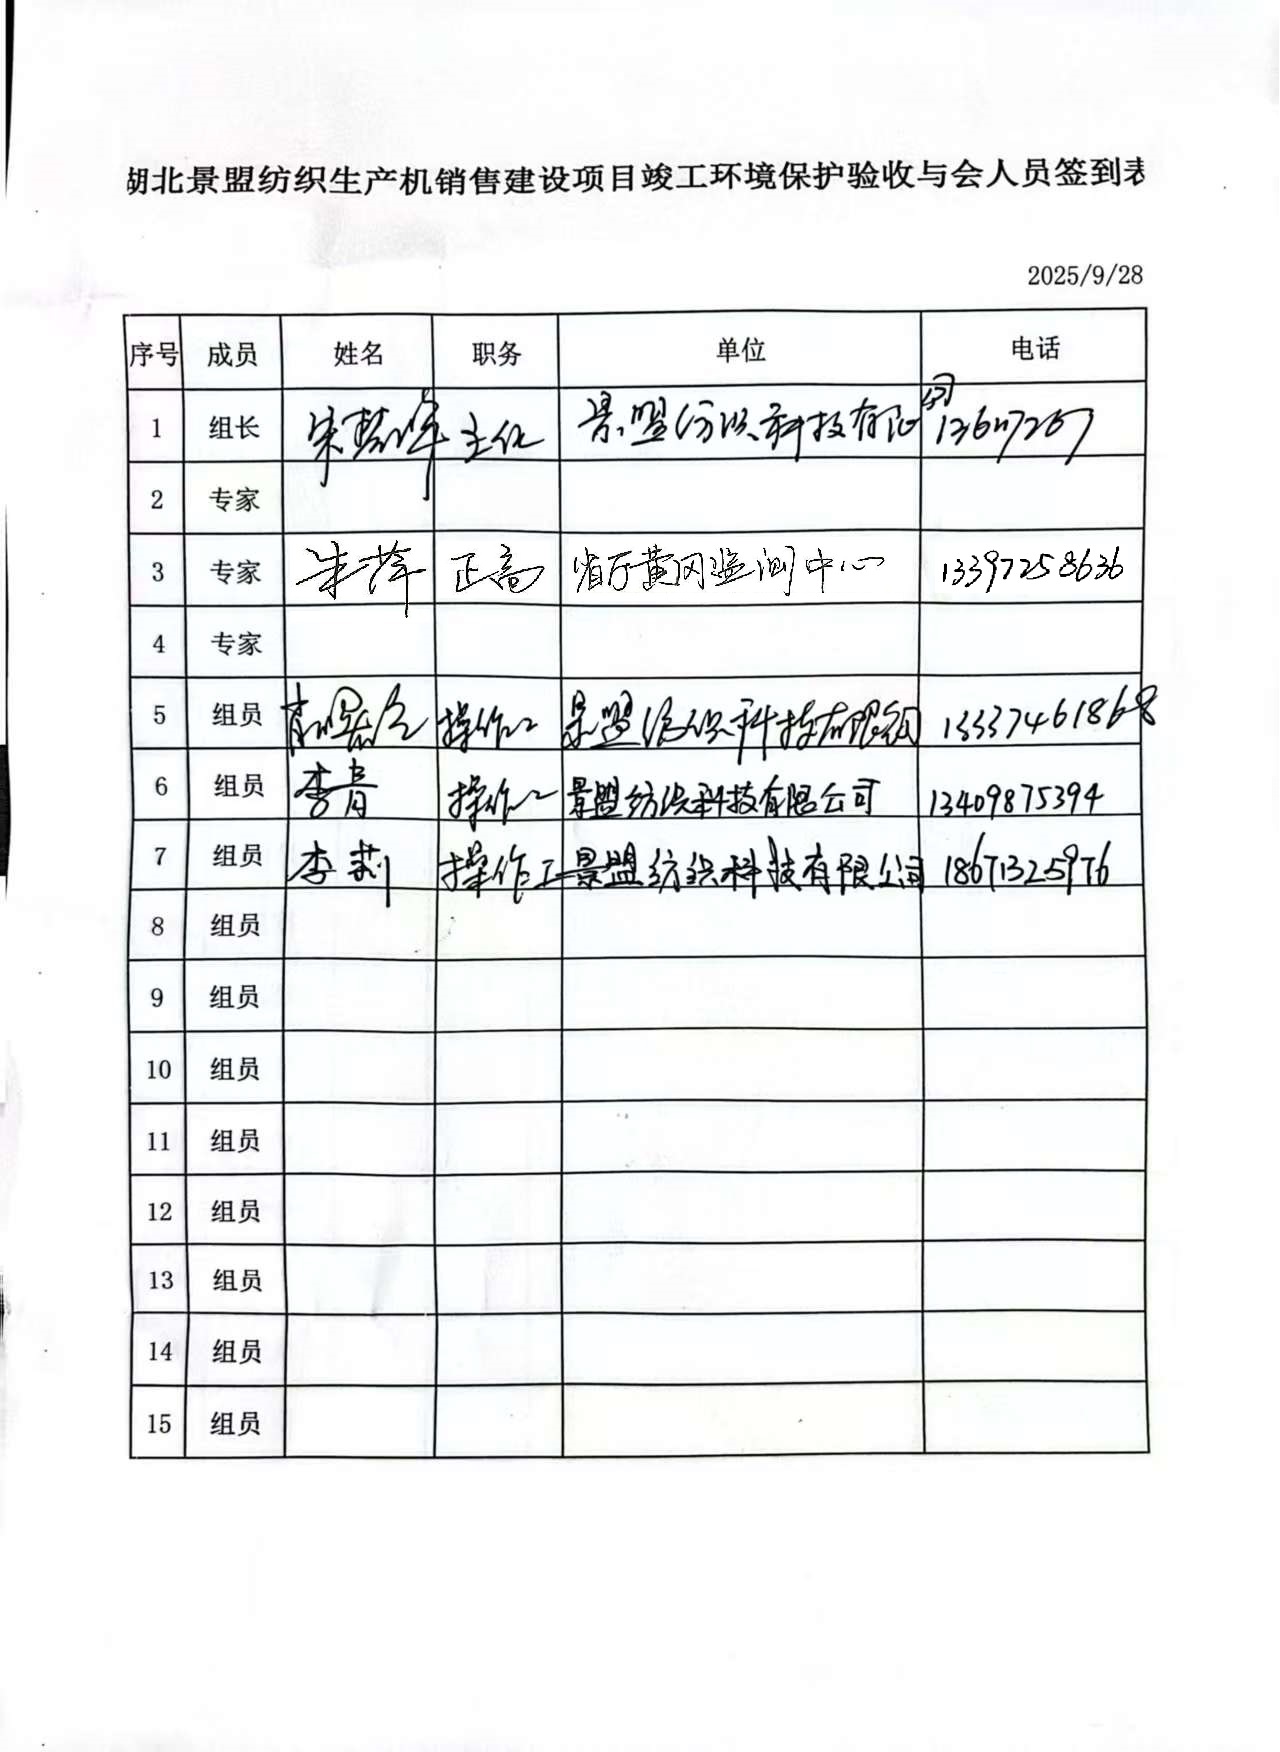 湖北景盟纺织生产机销售建设项目竣工环境保护验收与会人员签到表
2025/9/28
序号 成员 姓名 职务 单位 电话
1 组长 主任 景盟纺织科技有限公司
2 专家
3 专家 朱萍 正高 省厅黄冈监测中心 13397258636
4 专家
5 组员 操作工 景盟纺织科技有限公司 13337461868
6 组员 李青 操作工 景盟纺织科技有限公司 13409875394
7 组员 李莉 操作工 景盟纺织科技有限公司 18671325976
8 组员
9 组员
10 组员
11 组员
12 组员
13 组员
14 组员
15 组员